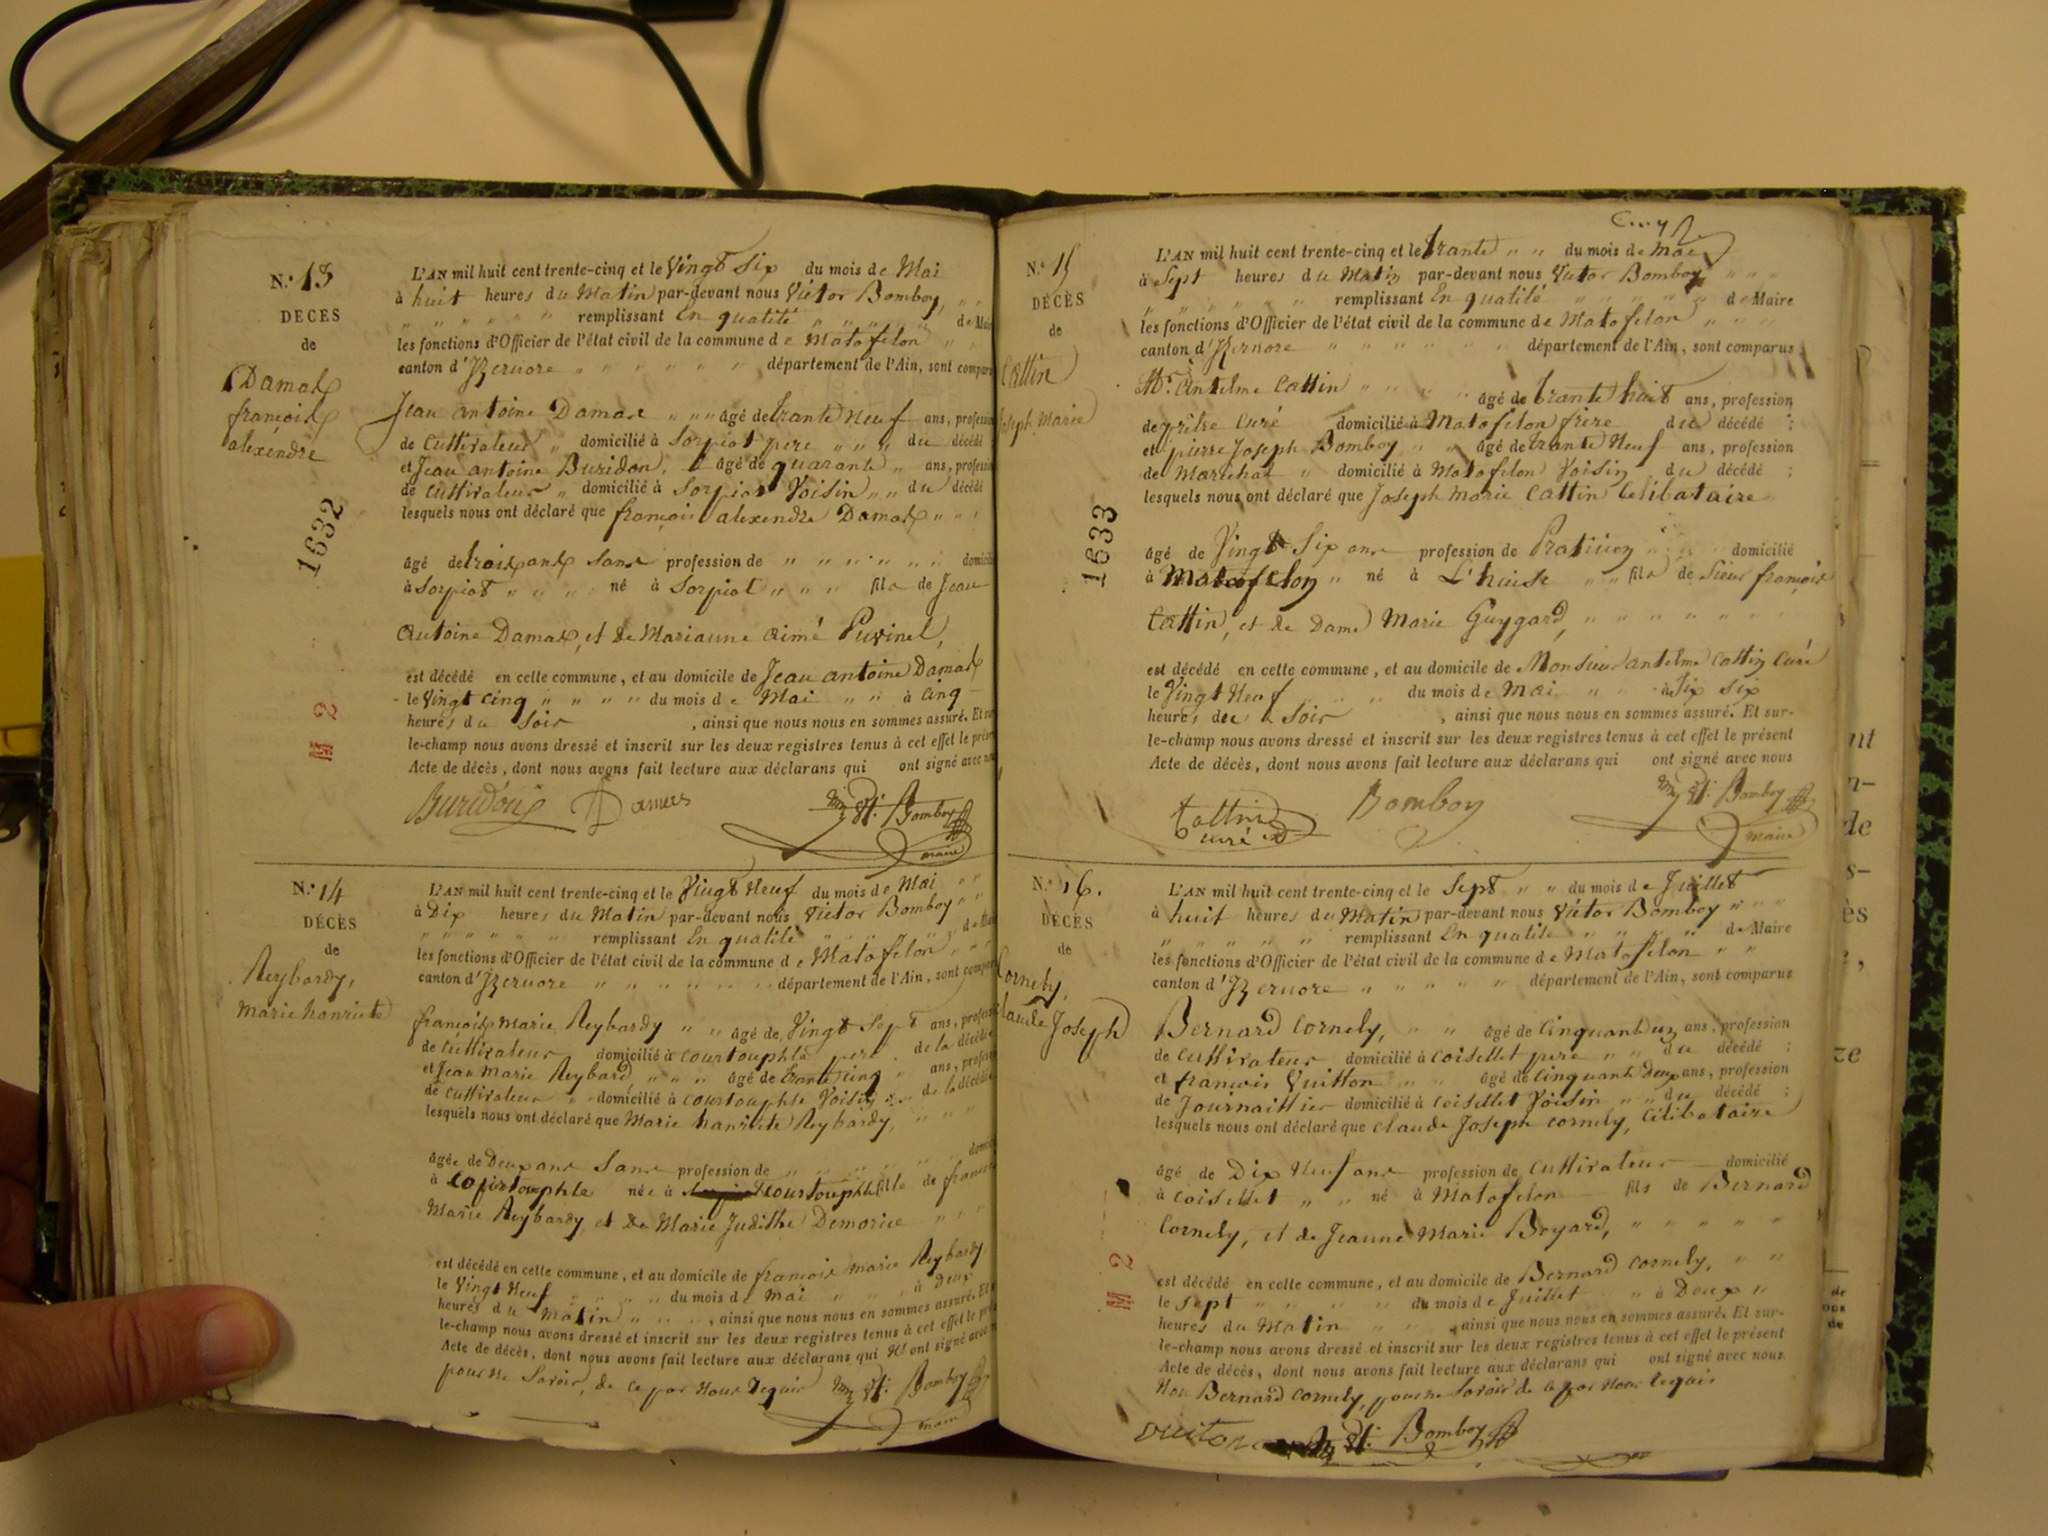 N.° 13
DÉCÈS
de
Damas
françois
alexendre
1632
L'AN mil huit cent trente-cinq et le Vingt Six du mois de Mai
à huit heures du Matin par-devant nous Victor Bomboy,
remplissant En qualité de Mair
les fonctions d'Officier de l'état civil de la commune de Matafelon
canton d'Izernore département de l'Ain, sont compar
Jean antoine Damas âgé de trante Neuf ans, profession
de Cultivateur domicilié à Sorpiat pere du décédé
et Jean antoine Buridon, âgé de quarante ans, profession
de Cultivateur domicilié à Sorpiat Voisin du décédé
lesquels nous ont déclaré que françois alexendre Damas
âgé de trois ans Sans profession de domicilié
à Sorpiat né à Sorpiat fils de Jean
Antoine Damas, et de Marianne aimé Puvinel,
est décédé en cette commune, et au domicile de Jean antoine Damas
le Vingt Cinq du mois de Mai à Cinq
heures du Soir, ainsi que nous nous en sommes assuré. Et
le-champ nous avons dressé et inscrit sur les deux registres tenus à cet effet le
Acte de décès, dont nous avons fait lecture aux déclarans qui ont signé avec
Buridon Damas Vr. Bomboy
maire
N.° 14
DÉCÈS
de
Reybardy,
Marie hanriete
L'AN mil huit cent trente-cinq et le Vingt Neuf du mois de Mai
à Dix heures du Matin par-devant nous Victor Bomboy
remplissant En qualité de
les fonctions d'Officier de l'état civil de la commune de Matafelon
canton d'Izernore département de l'Ain, sont
françois Marie Reybardy âgé de Vingt Sept ans,
de Cultivateur domicilié à Courtouphle pere de la décédée
et Jean Marie Reybard âgé de trante cinq ans,
de Cultivateur domicilié à Courtouphle Voisin de la décédée
lesquels nous ont déclaré que Marie hanriete Reybardy,
âgée de Deux ans Sans profession de
à Courtouphle née à Courtouphle fille de francois
Marie Reybardy, et de Marie Judithe Demorice
est décédé en cette commune, et au domicile de francois Marie Reybardy
le Vingt Neuf du mois de Mai à deux
heures du Matin, ainsi que nous nous en sommes assuré. Et
le-champ nous avons dressé et inscrit sur les deux registres tenus à cet effet le
Acte de décès, dont nous avons fait lecture aux déclarans qui N'ont signé avec
pour ne Savoir, de ce par Nous Requis Vr. Bomboy
maire
N.° 15
DÉCÈS
de
Cattin
Joseph Marie
1633
L'AN mil huit cent trente-cinq et le trante du mois de Mai
à Sept heures du Matin par-devant nous Victor Bomboy
remplissant En qualité de Maire
les fonctions d'Officier de l'état civil de la commune de Matafelon
canton d'Izernore département de l'Ain, sont comparus
Mr. Antelme Cattin âgé de trante huit ans, profession
de prêtre Curé domicilié à Matafelon frere du décédé ;
et pierre Joseph Bomboy âgé de trante Neuf ans, profession
de Maréchal domicilié à Matafelon Voisin du décédé ;
lesquels nous ont déclaré que Joseph Marie Cattin Celibataire
âgé de Vingt Six ans profession de Praticien domicilié
à Matafelon né à L'huish fils de Sieur françois
Cattin, et de Dame Marie Guygard,
est décédé en cette commune, et au domicile de Monsieur antelme Cattin Curé
le Vingt Neuf du mois de Mai à Six
heures du Soir, ainsi que nous nous en sommes assuré. Et sur-
le-champ nous avons dressé et inscrit sur les deux registres tenus à cet effet le présent
Acte de décès, dont nous avons fait lecture aux déclarans qui ont signé avec nous
Cattin curé Bomboy Vr. Bomboy
maire
N.° 16.
DÉCÈS
de
Cornely,
Claude Joseph
L'AN mil huit cent trente-cinq et le Sept du mois de Juillet
à huit heures du Matin par-devant nous Victor Bomboy
remplissant En qualité de Maire
les fonctions d'Officier de l'état civil de la commune de Matafelon
canton d'Izernore département de l'Ain, sont comparus
Bernard Cornely, âgé de Cinquant un ans, profession
de Cultivateur domicilié à Coisellet pere du décédé ;
et francois Vuitton âgé de Cinquant Deux ans, profession
de Journaillier domicilié à Coisellet Voisin du décédé ;
lesquels nous ont déclaré que Claude Joseph Cornely, Célibataire
âgé de Dix Neuf ans profession de Cultivateur domicilié
à Coisellet né à Matafelon fils de Bernard
Cornely, et de Jeanne Marie Boyard,
est décédé en cette commune, et au domicile de Bernard Cornely,
le Sept du mois de Juillet à Deux
heures du Matin, ainsi que nous nous en sommes assuré. Et sur-
le-champ nous avons dressé et inscrit sur les deux registres tenus à cet effet le présent
Acte de décès, dont nous avons fait lecture aux déclarans qui ont signé avec nous
Non Bernard Cornely, pour ne Savoir de ce par Nous Requis
Vuiton Vr. Bomboy